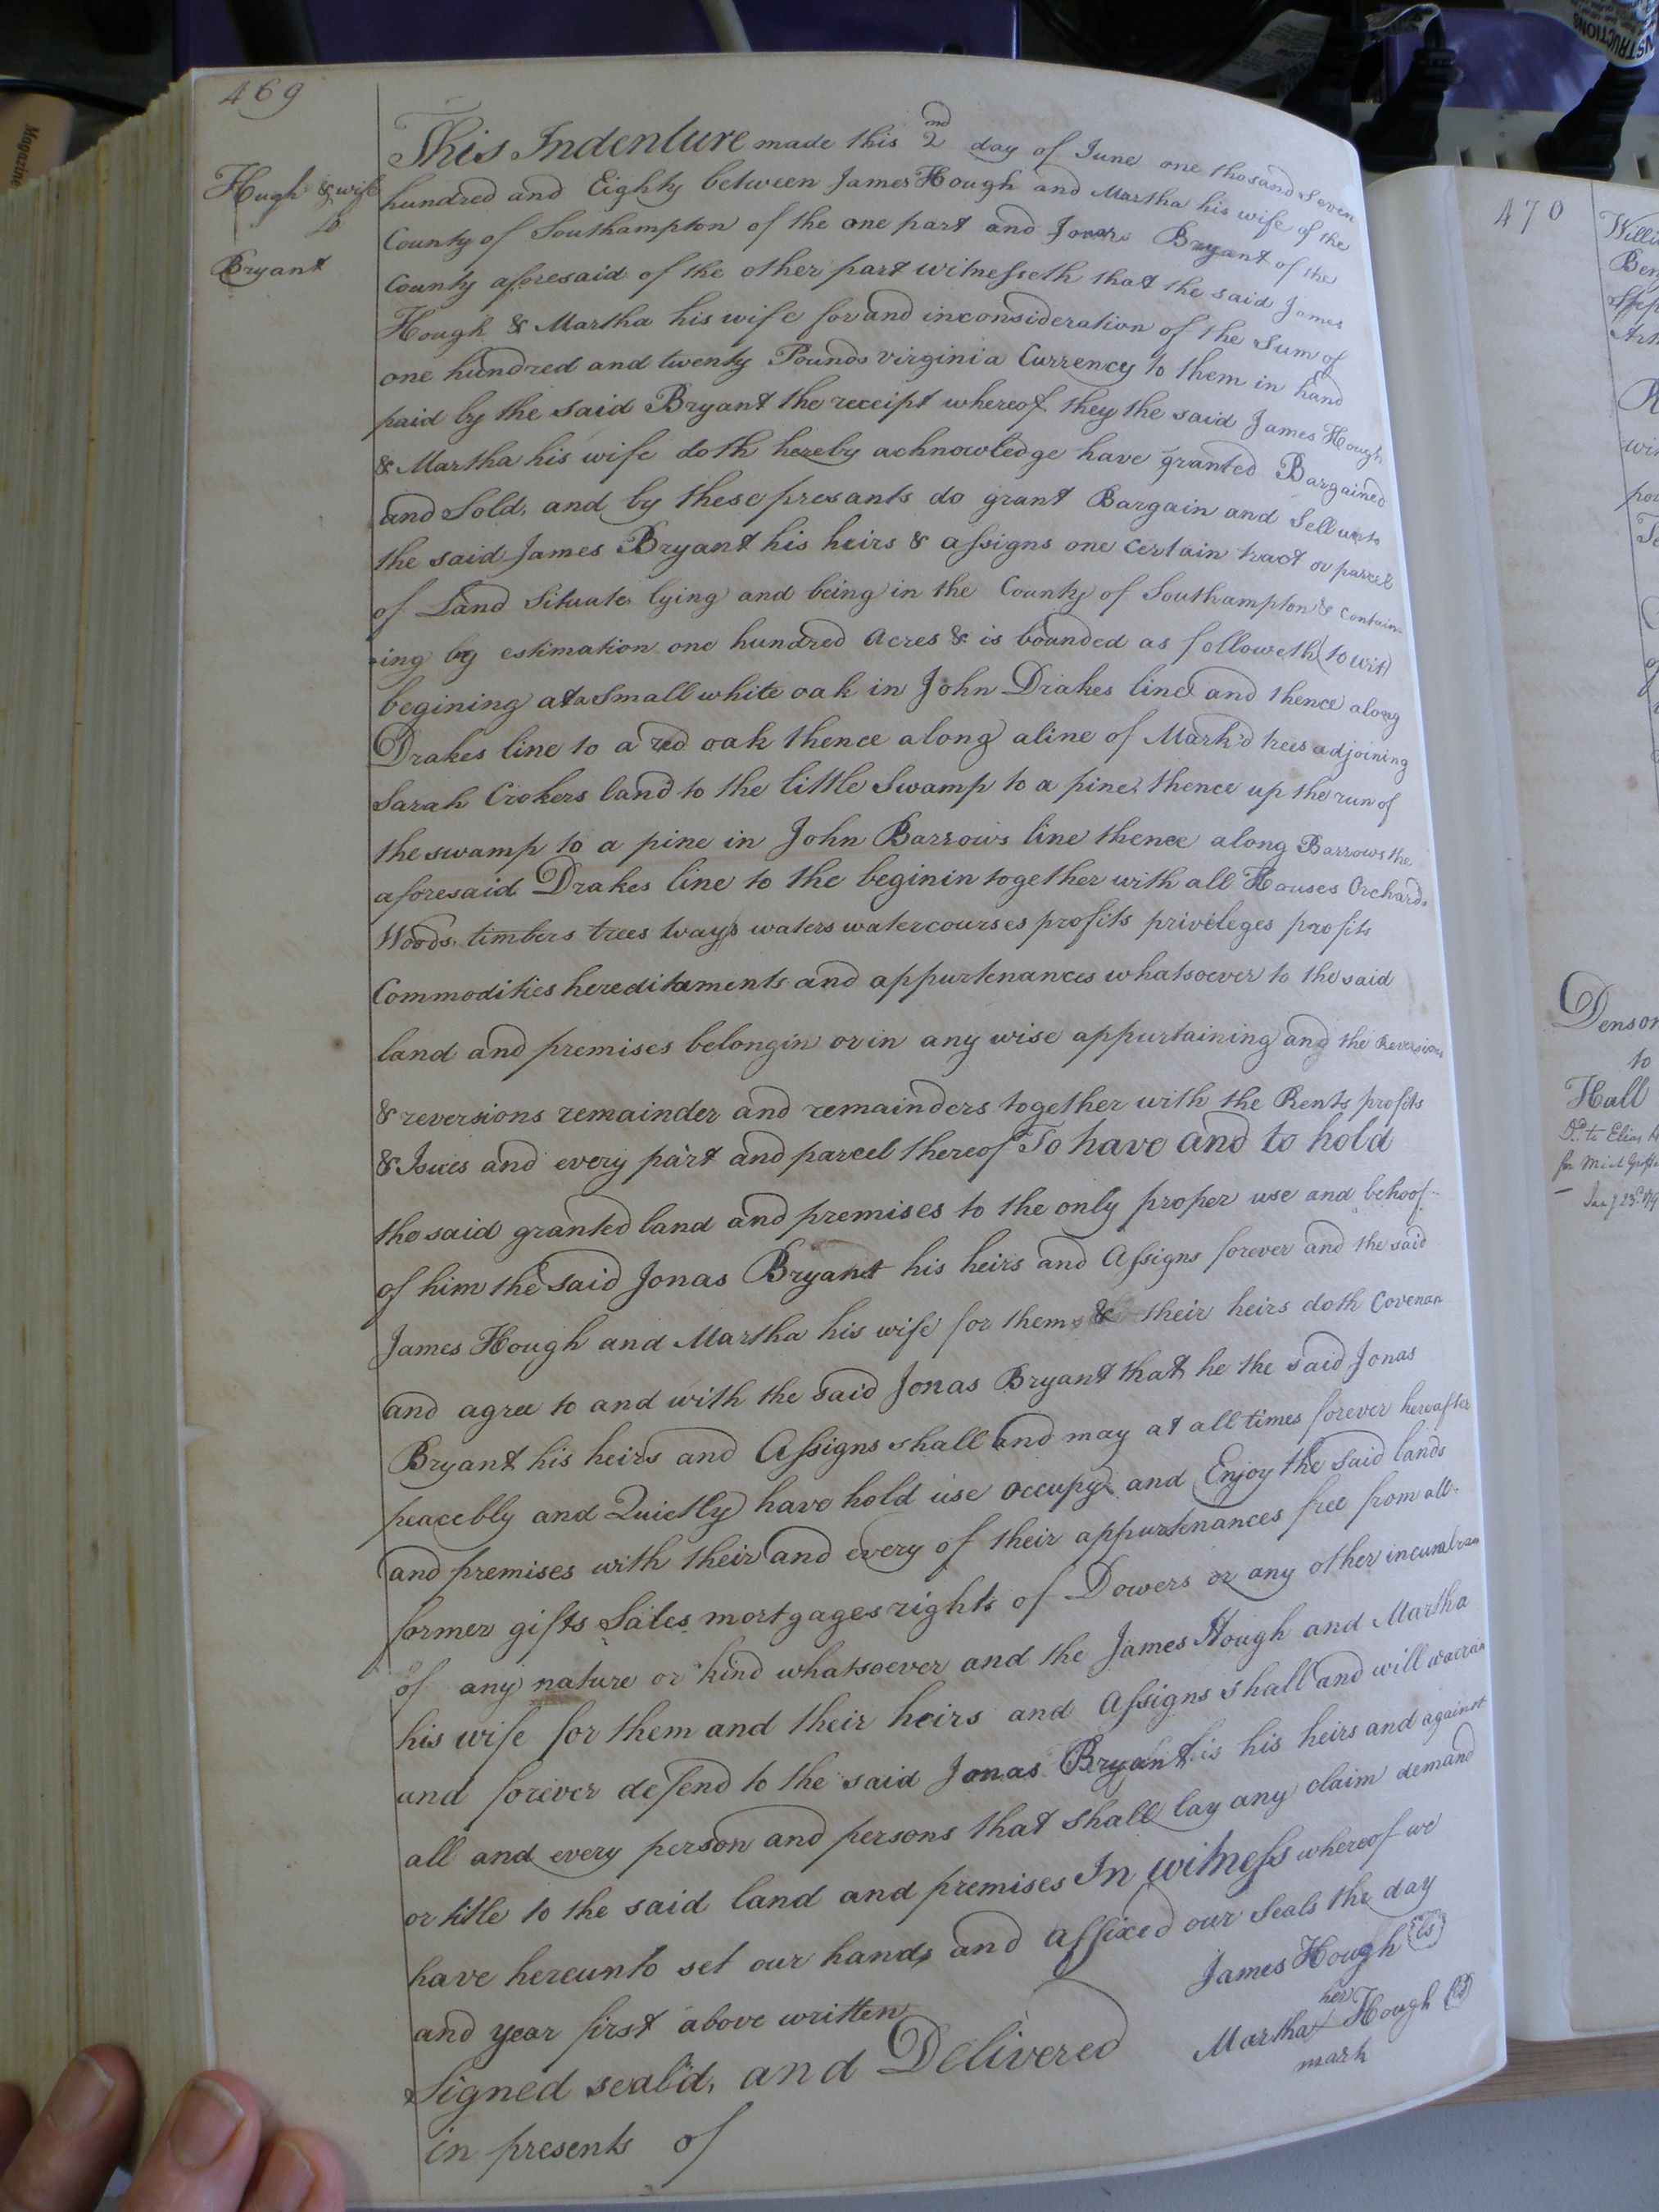 469
Hugh & wife
to
Bryant
This Indenture made this 2nd day of June one thosand seven
hundred and Eighty between James Hough and Martha his wife of the
County of Southampton of the one part and Jonas Bryant of the
County aforesaid of the other part witnesseth that the said James
Hough & Martha his wife for and inconsideration of the Sum of
one hundred and twenty Pounds virginia Currency to them in hand
paid by the said Bryant the receipt whereof they the said James Hough
& Martha his wife doth hereby acknowledge have granted Bargained
and Sold, and by these presants do grant Bargain and Sell unto
the said James Bryant his heirs & assigns one certain tract or parcel
of Land Situate lying and being in the County of Southampton & contain-
-ing by estimation one hundred acres & is bounded as followeth (to wit)
begining at a Small white oak in John Drakes line and thence along
Drakes line to a red oak thence along aline of Mark'd trees adjoining
Sarah Crokers land to the little Swamp to a pine, thence up the run of
the swamp to a pine in John Barrows line thence along Barrows the
aforesaid Drakes line to the beginin together with all Houses Orchards
Woods, timbers trees ways waters watercourses profits priveleges profits
Commodities hereditaments and appurtenances whatsoever to the said
land and premises belongin or in any wise appurtaining and the Reversions
& reversions remainder and remainders together with the Rents profits
& Isues and every part and parcel thereof To have and to hold
the said granted land and premises to the only proper use and behoof
of him the said Jonas Bryant his heirs and Assigns forever and the said
James Hough and Martha his wife for them & their heirs doth Covenan
and agree to and with the said Jonas Bryant that he the said Jonas
Bryant his heirs and Assigns shall and may at all times forever hereafter
peacebly and Quietly have hold use occupy and Enjoy the said lands
and premises with their and every of their appurtenances free from all
former gifts Sales mortgages rights of Dowers or any other incumbran
of any nature or kind whatsoever and the James Hough and Martha
his wife for them and their heirs and Assigns shall and will warran
and forever defend to the said Jonas Bryant his his heirs and against
all and every person and persons that shall lay any claim demand
or title to the said land and premises In witness whereof we
have hereunto set our hands and affixed our Seals the day
and year first above written
James Hough (Ls)
her
Martha Hough (Ls)
mark
Signed seal'd, and Delivered
in presents of
470
Denson
to
Hall